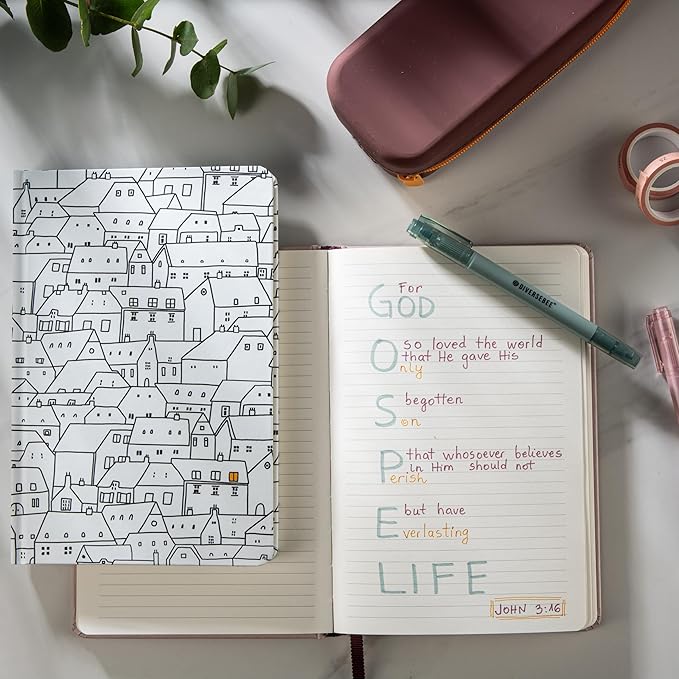 For
GOD
so loved the world
that He gave His
Only
begotten
Son
that whosoever believes
in Him should not
Perish
but have
Everlasting
LIFE
JOHN 3:16
DIVERSEBEE